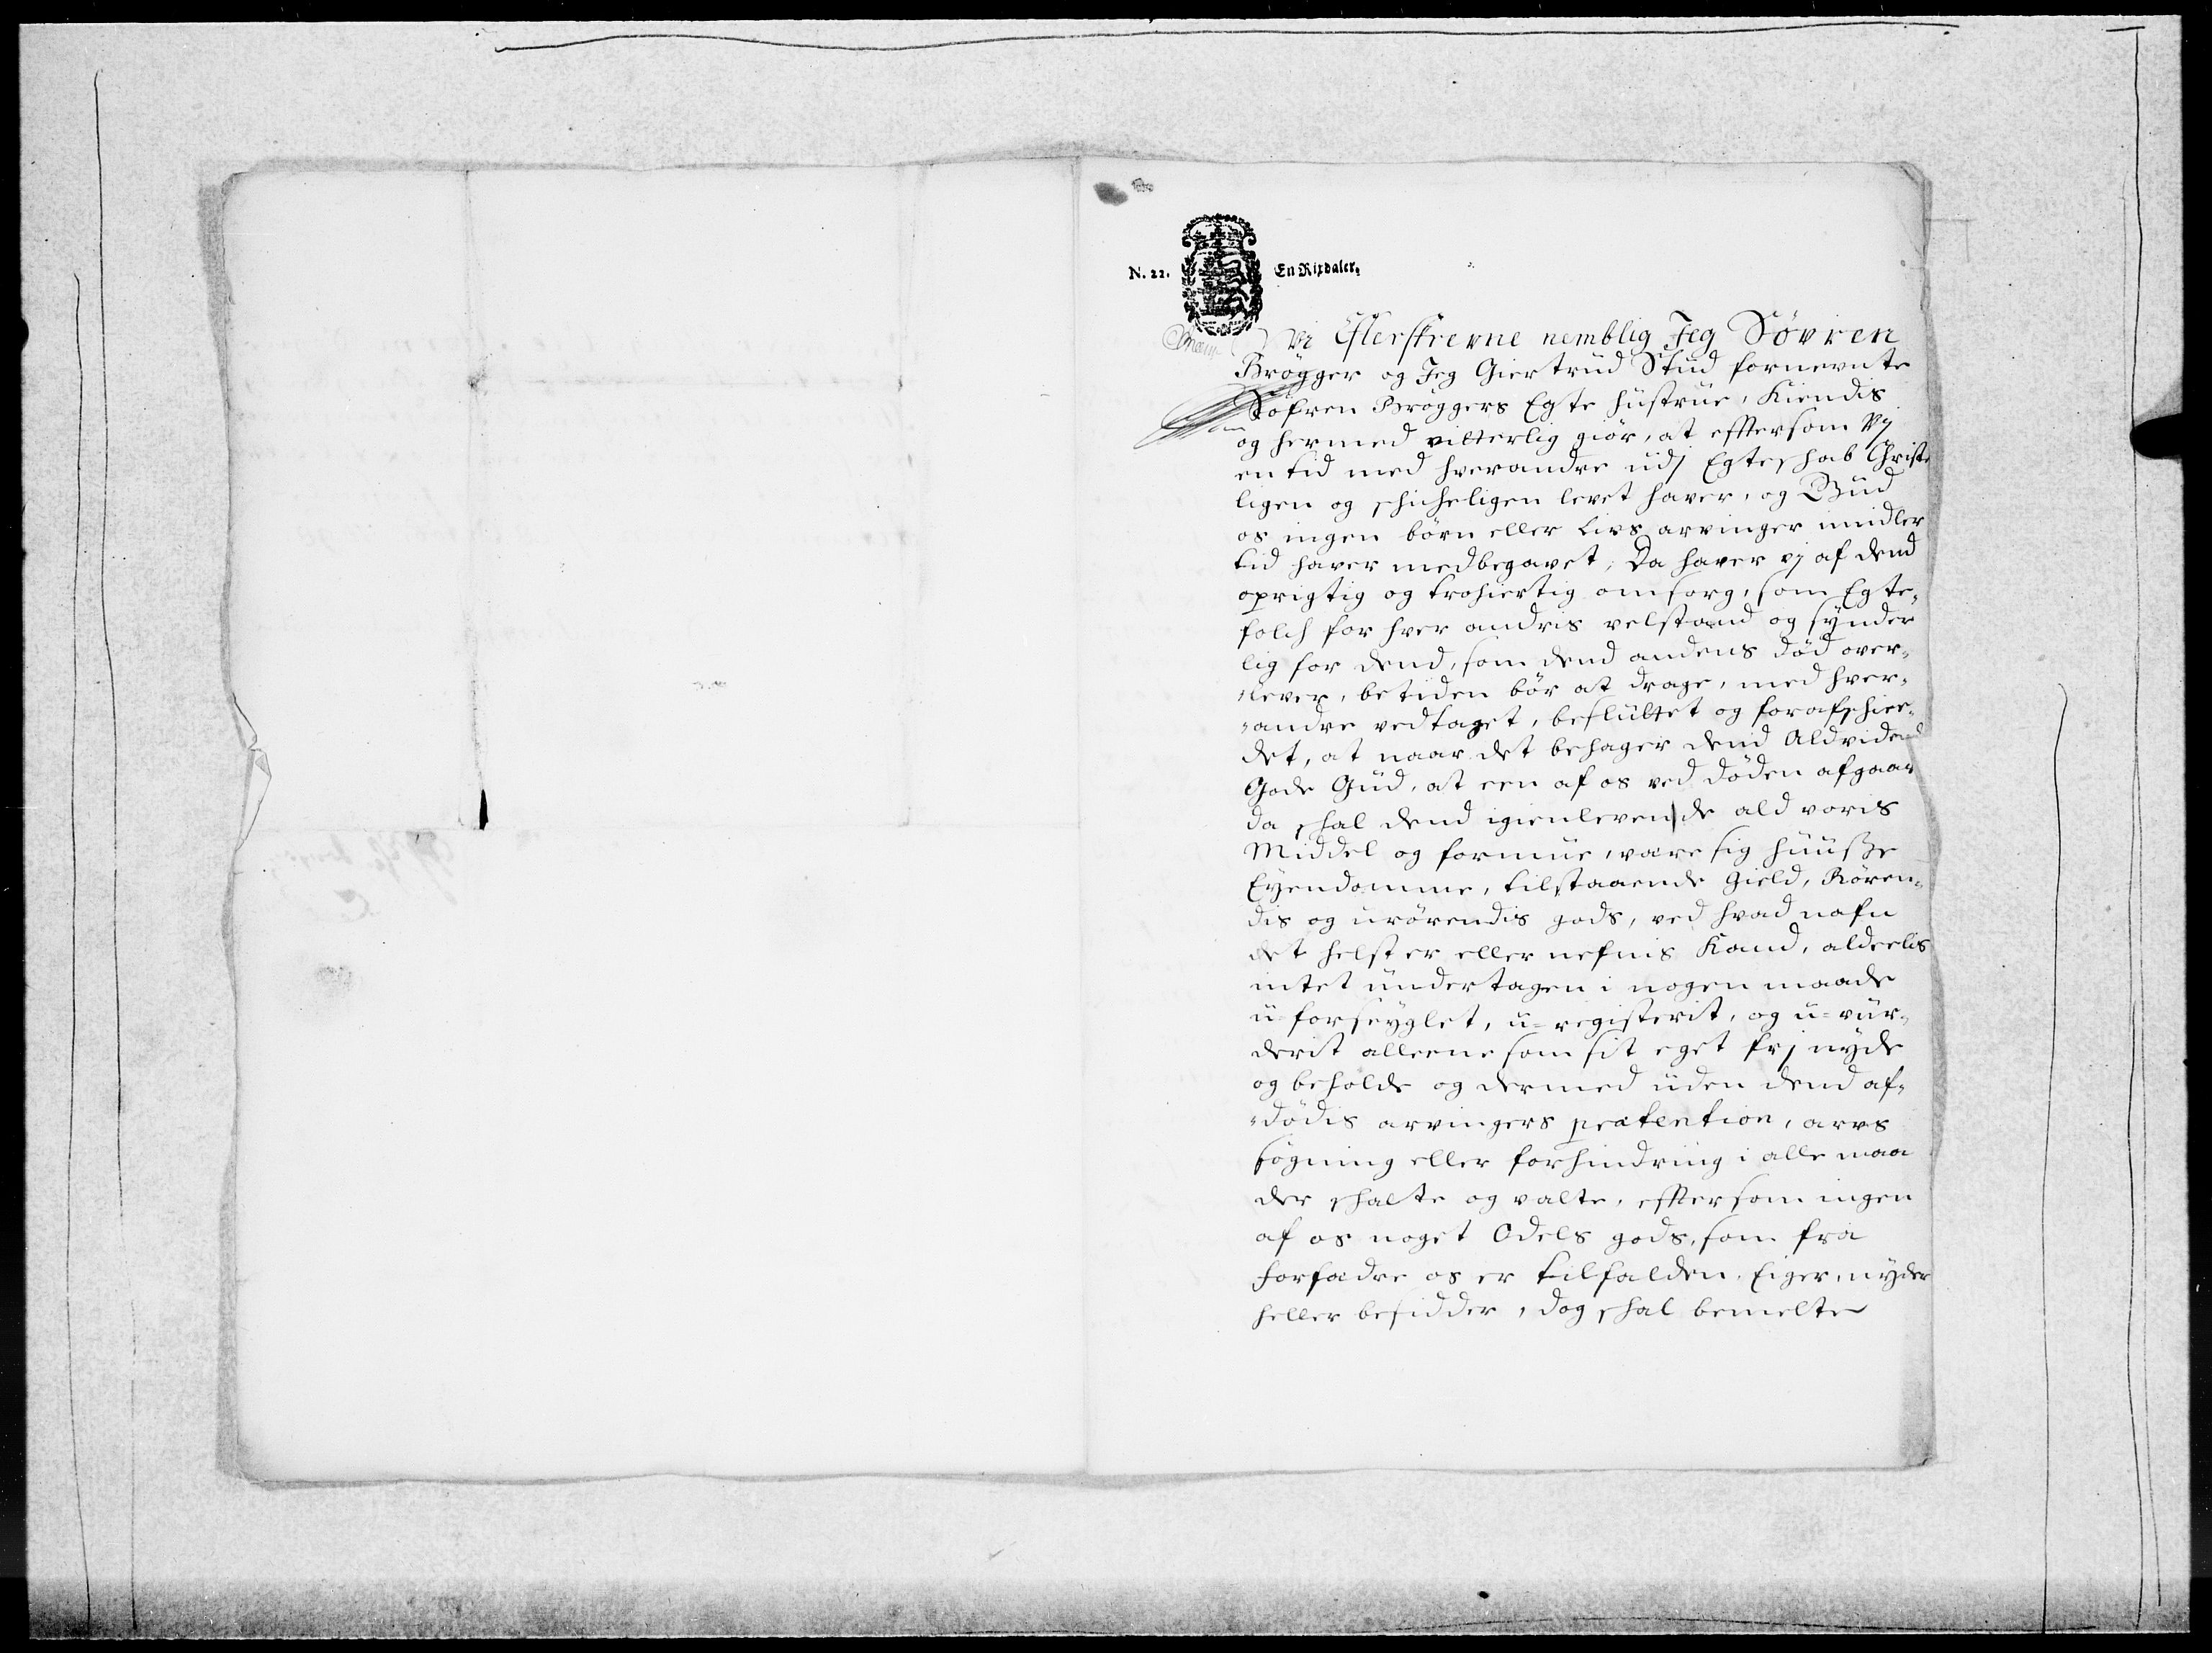 N. 22. En Rixdaler.
Vi Efterskrevne nemblig Jeg Søvren
Brøgger og Jeg Giertrud Stud fornevnte
Søfren Brøggers Egte hüstrüe, Kiendis
og hermed vitterlig giør, at efftersom Vj
en tid med hverandre udj Egteschab Christe
ligen og schicheligen levet haver, og Gud
os ingen børn eller Livs arvinger imidler
tid haver medbegavet, Da haver vj af dend
oprigtig og trohiertig omsorg, som Egte-
folch for hver andris velstand og synder
lig for dend, som dend andens død over-
lever, betiden bør at drage, med hver-
andre vedtaget, beslüttet og forafschiee-
det, at naar det behager dend Aldvidend
Gode Güd, at een af os ved døden afgaar
da schal dend igienlevende ald voris
Middel og formüe, være sig hüüsze
Eyendomme, tilstaaende gield, Røren-
dis og urørendis gods, ved hvad nafn
det helst er eller nefnis kand, alderlis
intet undertagen i nogen maade
ü-forseyglet, ü-registerit, og ü-vur-
derit alleene som sit eget frj nyde
og beholde og dermed uden dend af-
dødis arvingers prætention, arvs
søgning eller forhindring i alle maa
der schalte og valte, efftersom ingen
af os noget Odels gods, som fra
forfædre os er tilfalden, Eiger, nyder
heller besidder, dog schal bemelte